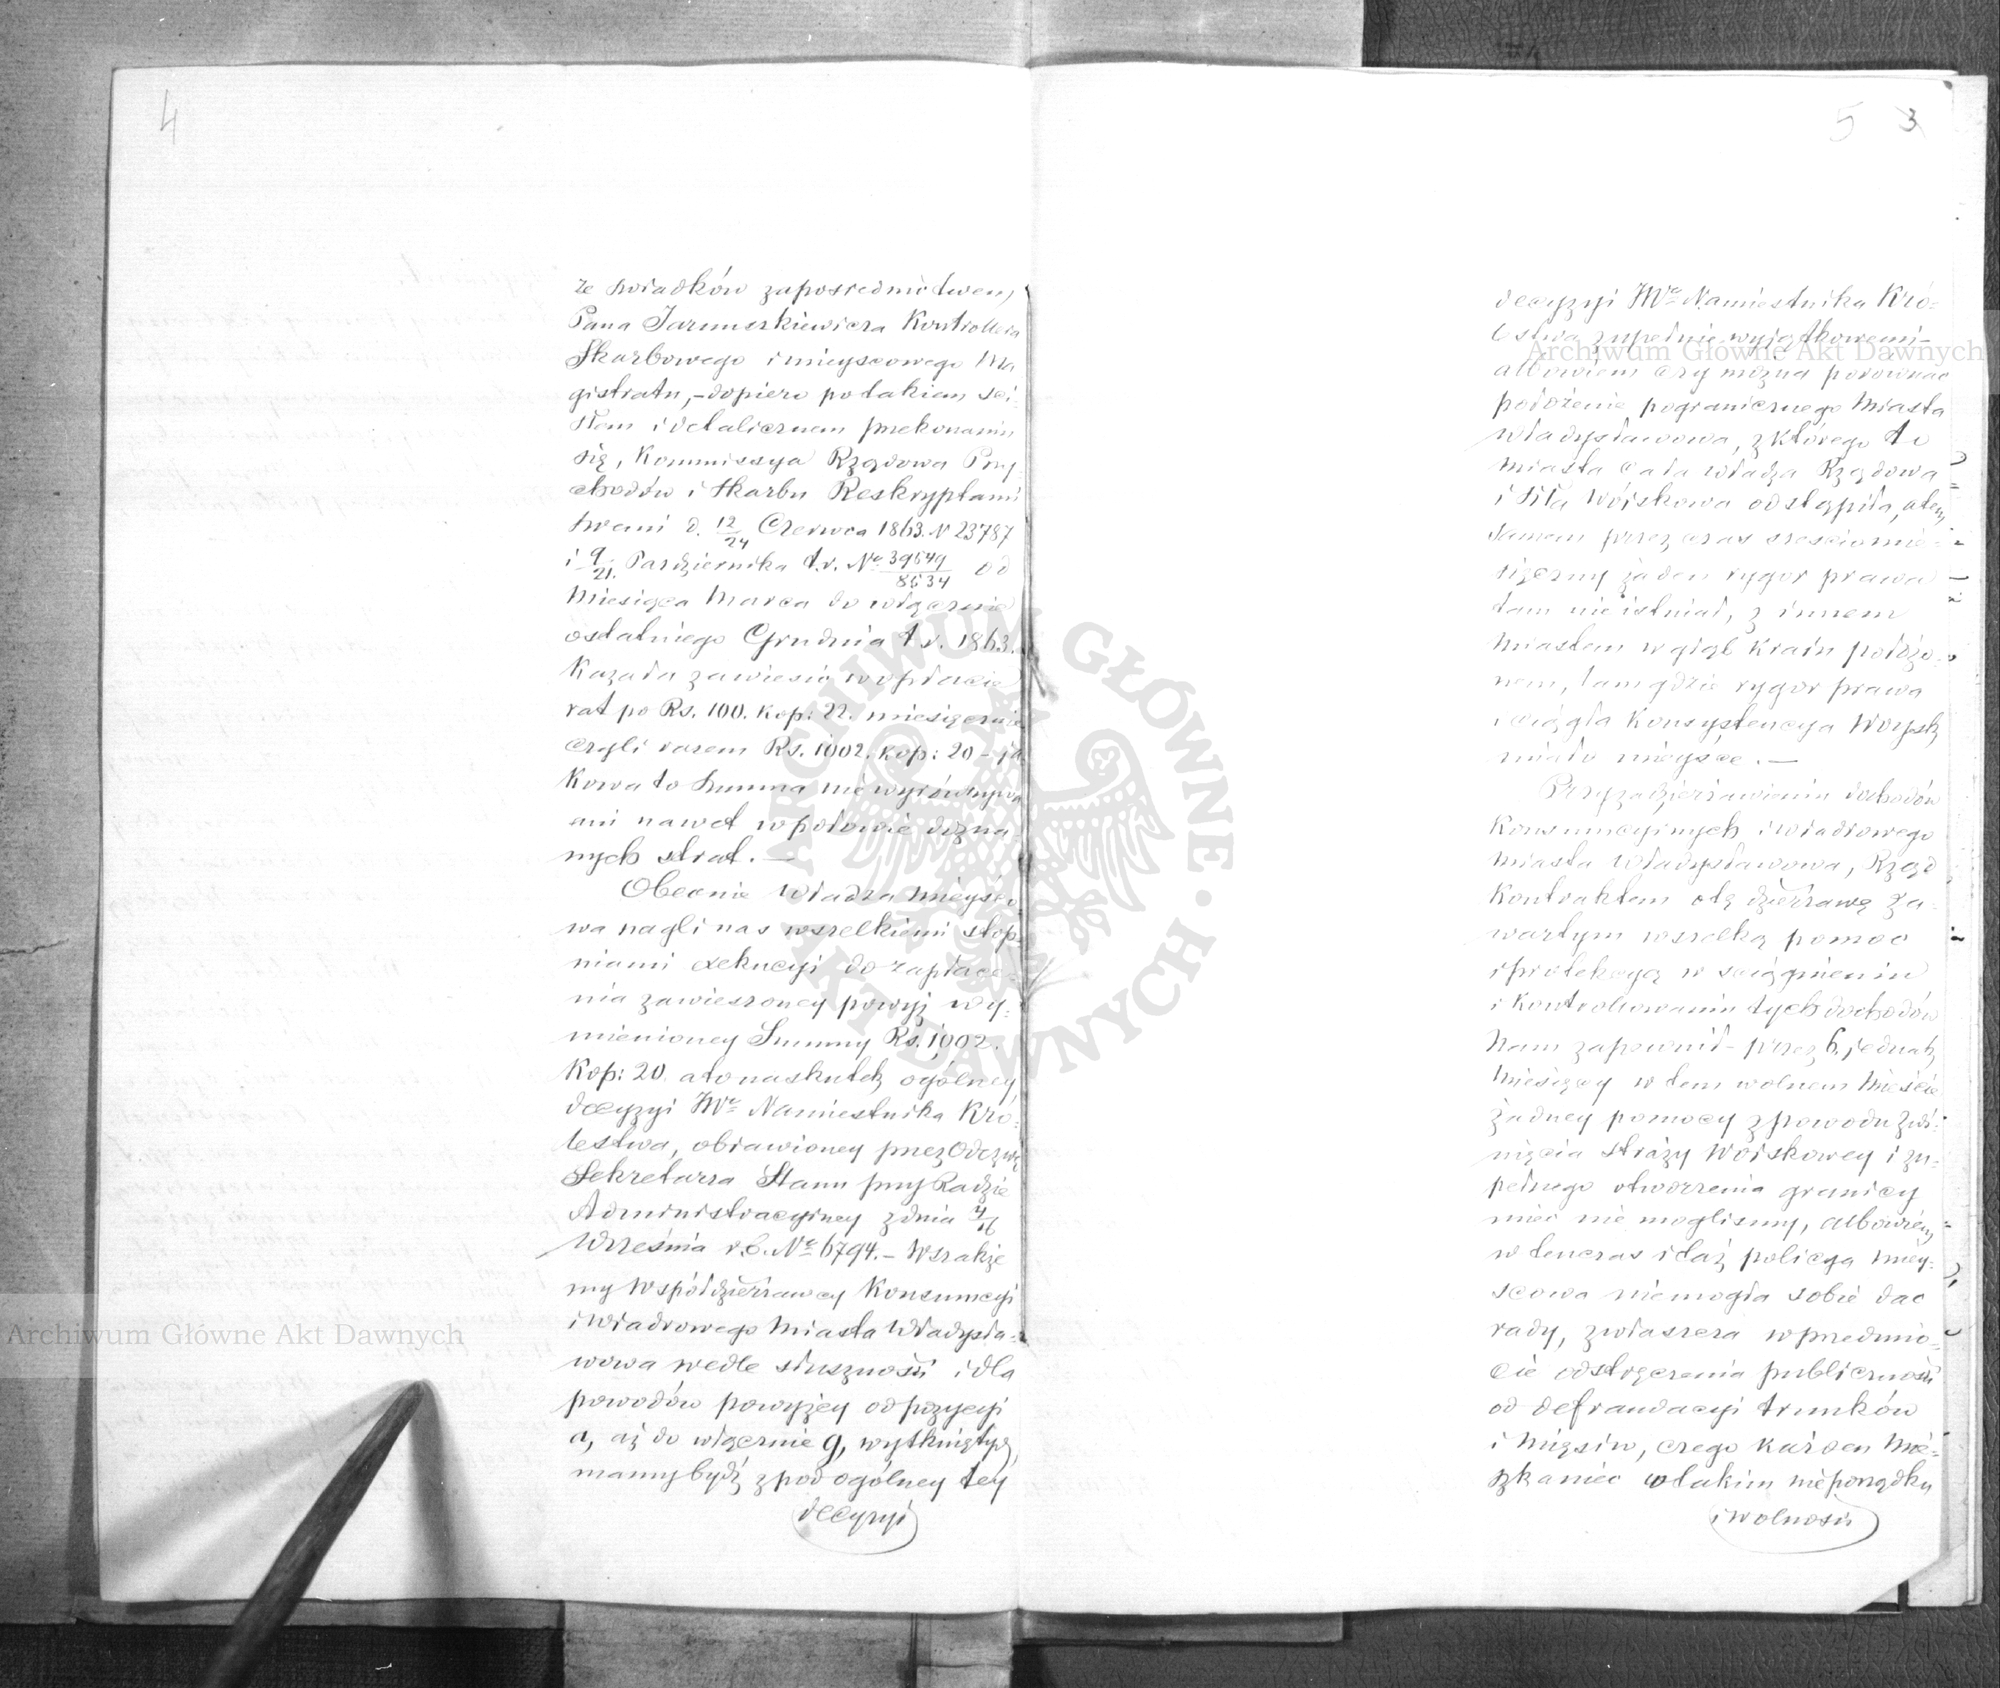 4
ze swiadków zaposrednictwem
Pana Jarmuszkiewicza Kontrollera
Skarbowego i mieyscowego Ma
gistratu,- dopiero po takiem sci-
słem i detalicznem przekonaniu
się, Kommissya Rządowa Przy-
chodów i Skarbu Reskryptami
swemi d. 12/24 Czerwca 1863. N 23787
i 9/21. Pazdziernika t.r. No 39649/8634 od
Miesiąca Marca do włącznie
ostatniego Grudnia t.r. 1863.
Kazała zawiesić w opłacie
rat po Rs. 100. kop: 22. miesięcznie
czyli razem Rs. 1002. kop: 20 - ja
kowa to Summa nie wyrównywa
ani nawet w połowie dozna-
nych strat. —
Obecnie Władza Mieysco
wa nagli nas wszelkiemi stop-
niami exekucyi do zapłace-
nia zawieszoney powyż wy-
mienioney Summy Rs. 1002.
Kop: 20. a to na skutek ogólney
decyzyi JWo Namiestnika Kró-
lestwa, obiawioney przez Odezwę
Sekretarza Stanu przy Radzie
Administracyiney z dnia 4/16
Września r.b. No 6794. - Wszakże
my Współdzierżawcy Konsumcyi
i Wiadrowego Miasta Władysła-
wowa wedle słuszności i dla
powodów powyżey od pozycyi
a, aż do włącznie g, wytkniętych
mamy bydź z pod ogólney tey
decyzyi
5 3
decyzyi JWo Namiestnika Kró-
lestwa zupełnie wyjątkowemi-
albowiem czy można porównać
położenie pogranicznego Miasta
Władysławowa, z którego to
Miasta cała władza Rządowa
i siła Wojskowa odstąpiła, a tem
samem przez czas sześciomie-
sięczny żaden rygor prawa
tam nie istniał, z innem
Miastem w głąb Kraiu położo-
nem, tam gdzie rygor prawa
i ciągła Konsystencya Woysk
miała mieysce. —
Przy zadzierżawieniu dochodów
Konsumcyinych i wiadrowego
Miasta Władysławowa, Rząd
Kontraktem o tę dzierżawę za-
wartym wszelką pomoc
i protekcyą w sciągnieniu
i kontrollowaniu tych dochodów
Nam zapewnił- przez 6. jednak
Miesięcy w tem wolnem Mieście
żadney pomocy z powodu zwi-
nięcia straży Woiskowey i zu-
pełnego otworzenia granicy
mieć nie moglismy, albowiem
w tenczas i taż policya miey-
scowa niemogła sobie dać
rady, zwłaszcza w przedmio-
cie odstręczenia publiczności
od defraudacyi trunków
i Mięsiw, czego każden Mie-
szkaniec w takim nieporządku
i wolności
Archiwum Główne Akt Dawnych
Archiwum Główne Akt Dawnych
ARCHIWUM GŁÓWNE AKT DAWNYCH